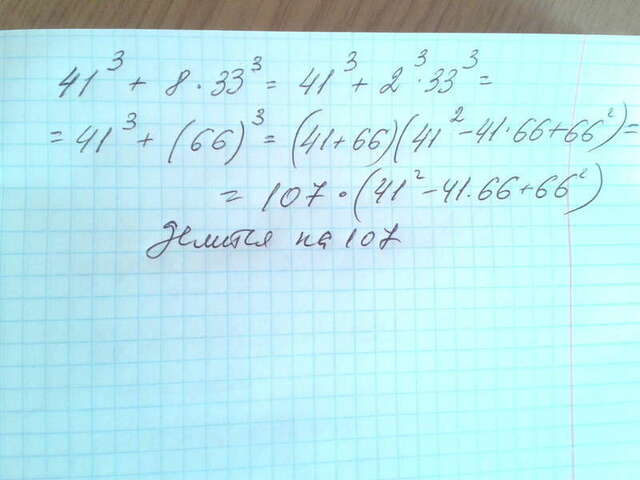 41³ + 8 · 33³ = 41³ + 2³ · 33³ =
= 41³ + (66)³ = (41+66)(41² - 41·66 + 66²) =
= 107 · (41² - 41·66 + 66²)
делится на 107